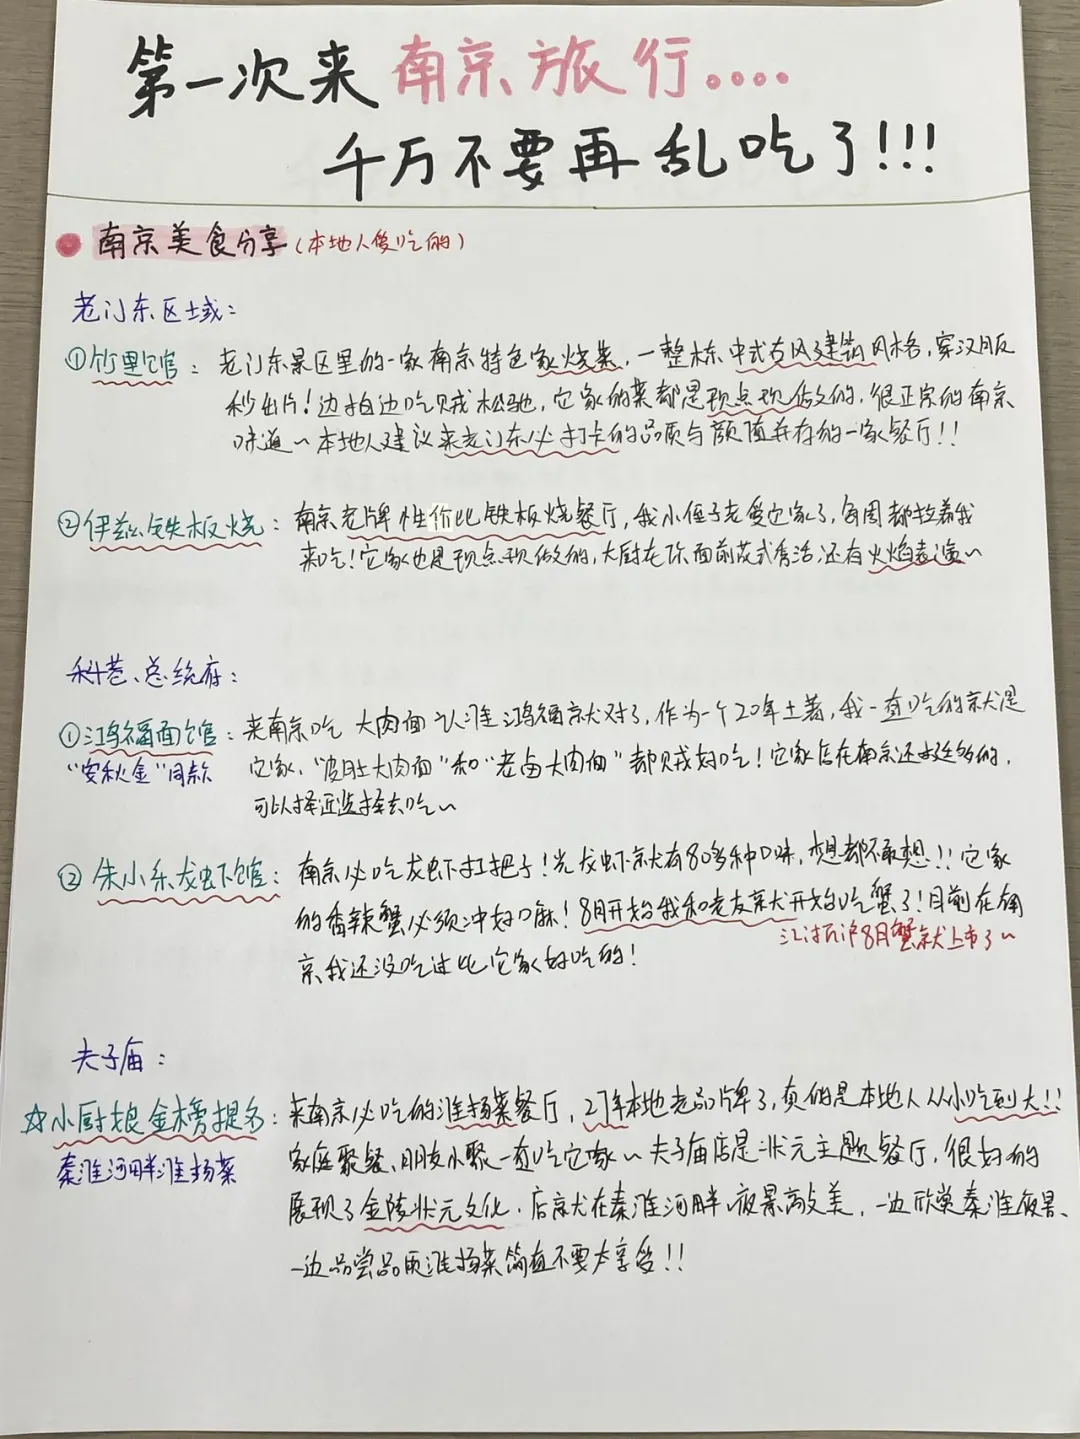 第一次来南京旅行....
千万不要再乱吃了!!!
南京美食分享(本地人爱吃的)
老门东区域:
①竹里馆: 老门东景区里的一家南京特色家烧菜,一整栋中式古风建筑风格,穿汉服
秒出片!边拍边吃贼松驰,它家的菜都是现点现做的,很正宗的南京
味道~本地人建议来老门东必打卡的品质与颜值并存的一家餐厅!!
②伊兹铁板烧: 南京老牌性价比铁板烧餐厅,我小侄子老爱它家了,每周都拉着我
来吃!它家也是现点现做的,大厨在你面前花式秀活,还有火焰表演~
科巷、总统府:
①鸿福面馆: 来南京吃大肉面认准鸿福就对了,作为一个20年土著,我一直吃的就是
"安秋金"同款 它家,"皮肚大肉面"和"老卤大肉面"都贼好吃!它家店在南京还挺多的,
可以择近选择去吃~
②朱小乐龙虾馆: 南京必吃龙虾扛把子!光龙虾就有80多种口味,想都不敢想!!它家
的香辣蟹必须冲好口嘛!8月开始我和老友就开始吃蟹了!目前在南
江浙沪8月蟹就上市了~
京我还没吃过比它家好吃的!
夫子庙:
☆小厨娘金榜提名: 来南京必吃的淮扬菜餐厅,27年本地老品牌了,真的是本地人从小吃到大!!
秦淮河畔淮扬菜 家庭聚餐、朋友小聚一直吃它家~夫子庙店是状元主题餐厅,很好的
展现了金陵状元文化,店就在秦淮河畔,夜景高文美,一边欣赏秦淮夜景、
一边品尝品质淮扬菜简直不要太享受!!